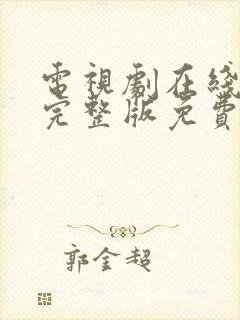 電視劇在綫
完整版免費
郭金超